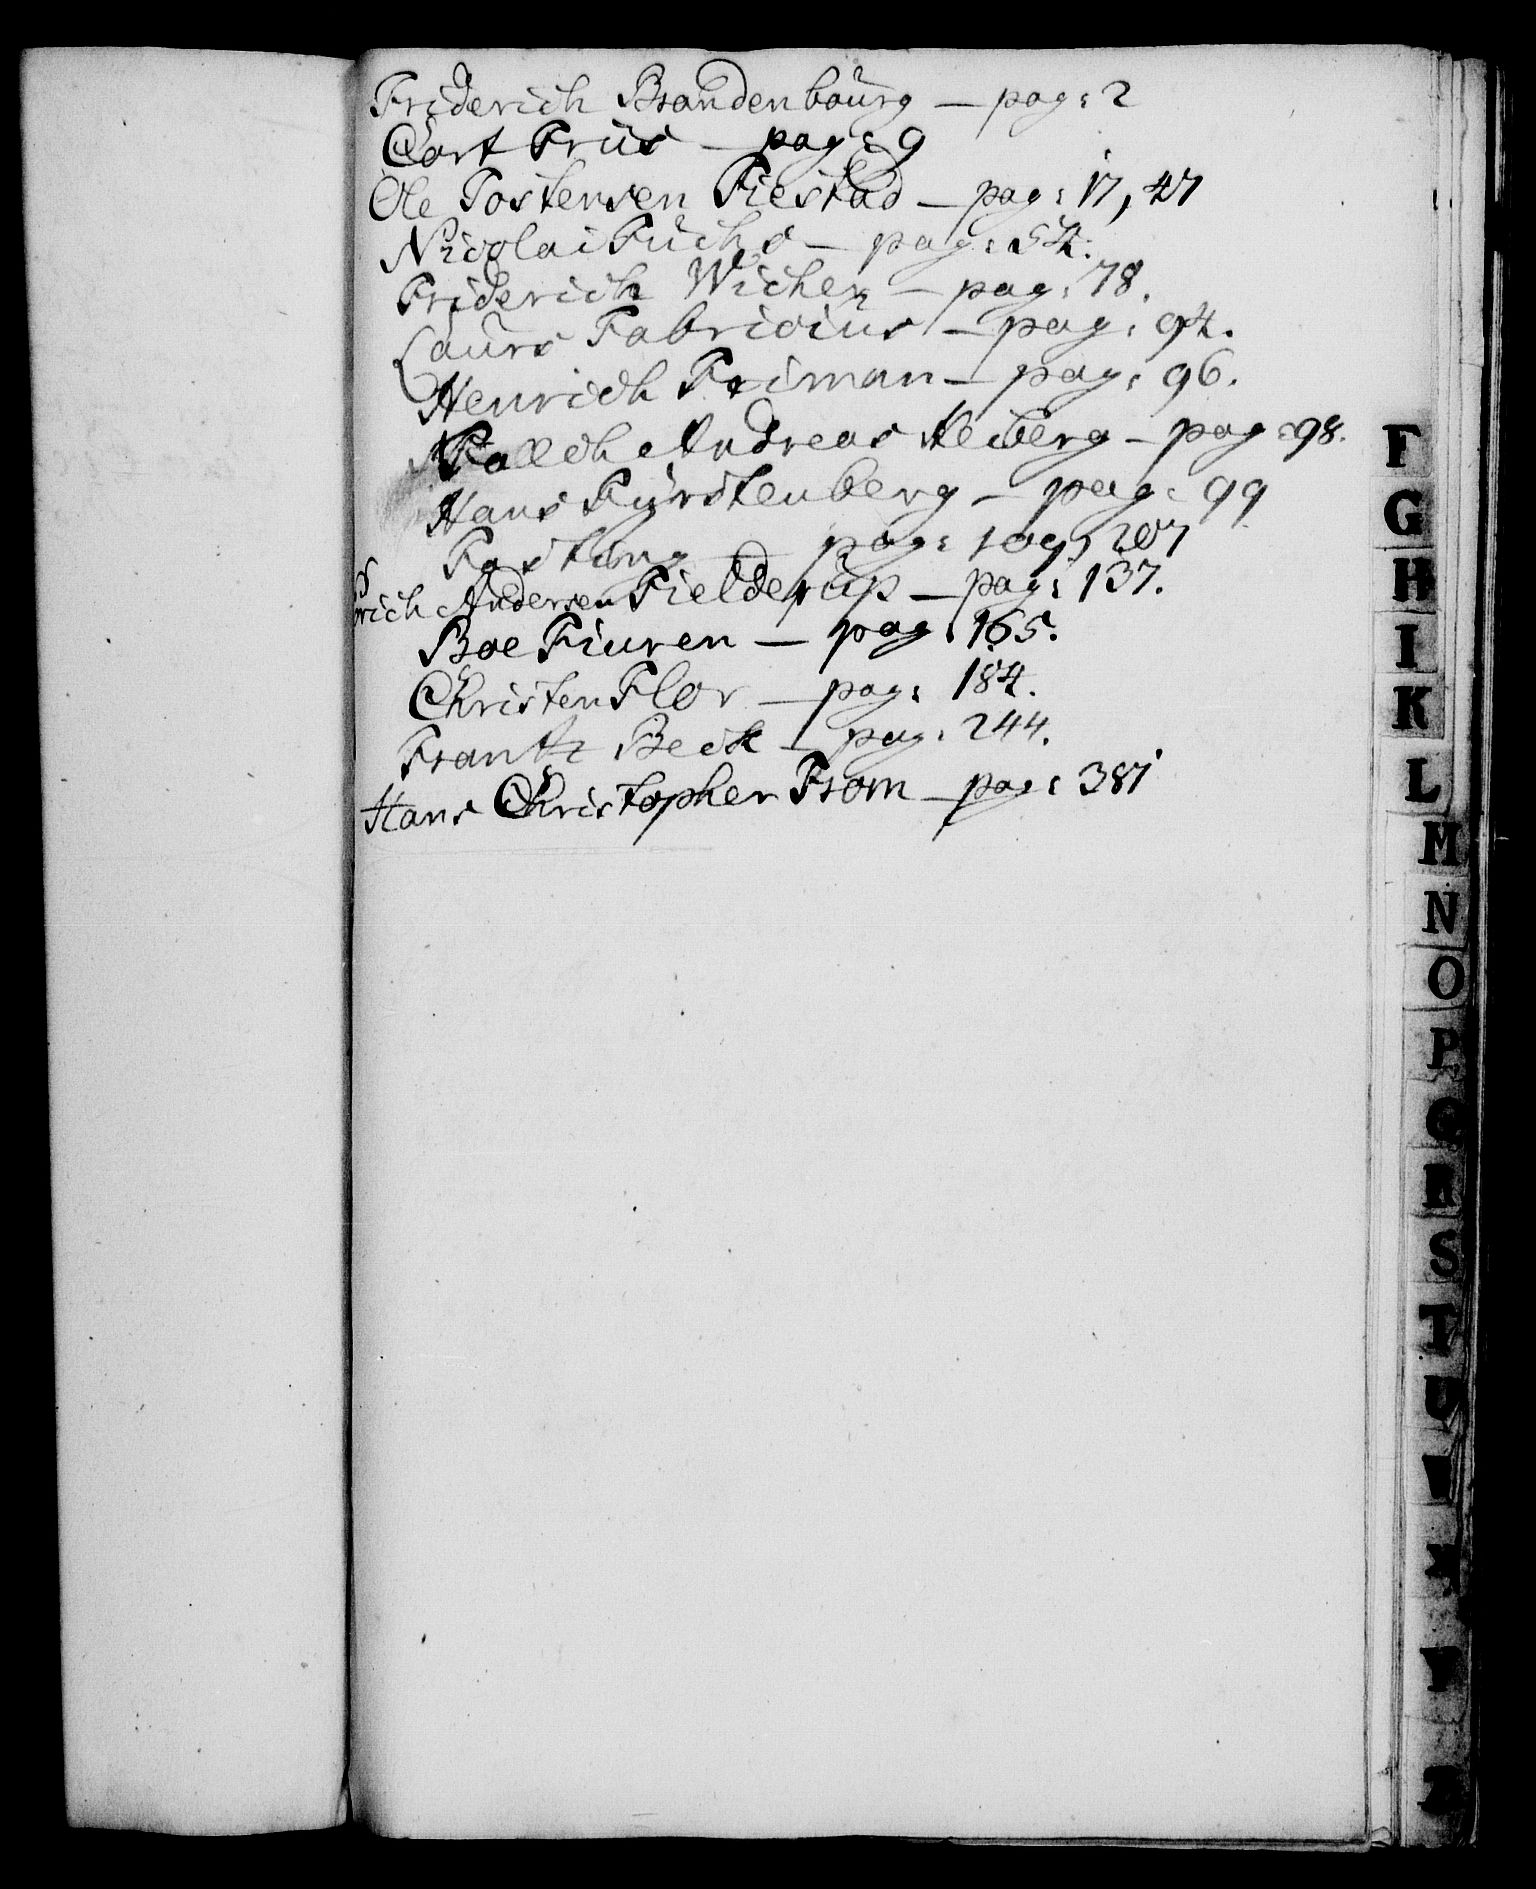 Friderich Brandenbourg — pag: 2
Cort Friis — pag: 9
Ole Tostensen Fiestad — pag: 17, 47
Nicolai Fuchs — pag: 54.
Friderich Wicher — pag: 78.
Laurs Fabricius — pag: 94.
Henrich Friman — pag: 96.
Falch Andreas Heiberg — pag: 98.
Hans Fyrstenberg — pag: 99
Fasting — pag: 109, 207
Andersen Fielderup — pag: 137.
Boe Finren — pag: 165.
Christen Flor — pag: 184.
Frantz Beck — pag: 244.
Hans Christopher From — pag: 387
F
G
H
I
K
L
M
N
O
P
Q
R
S
T
U